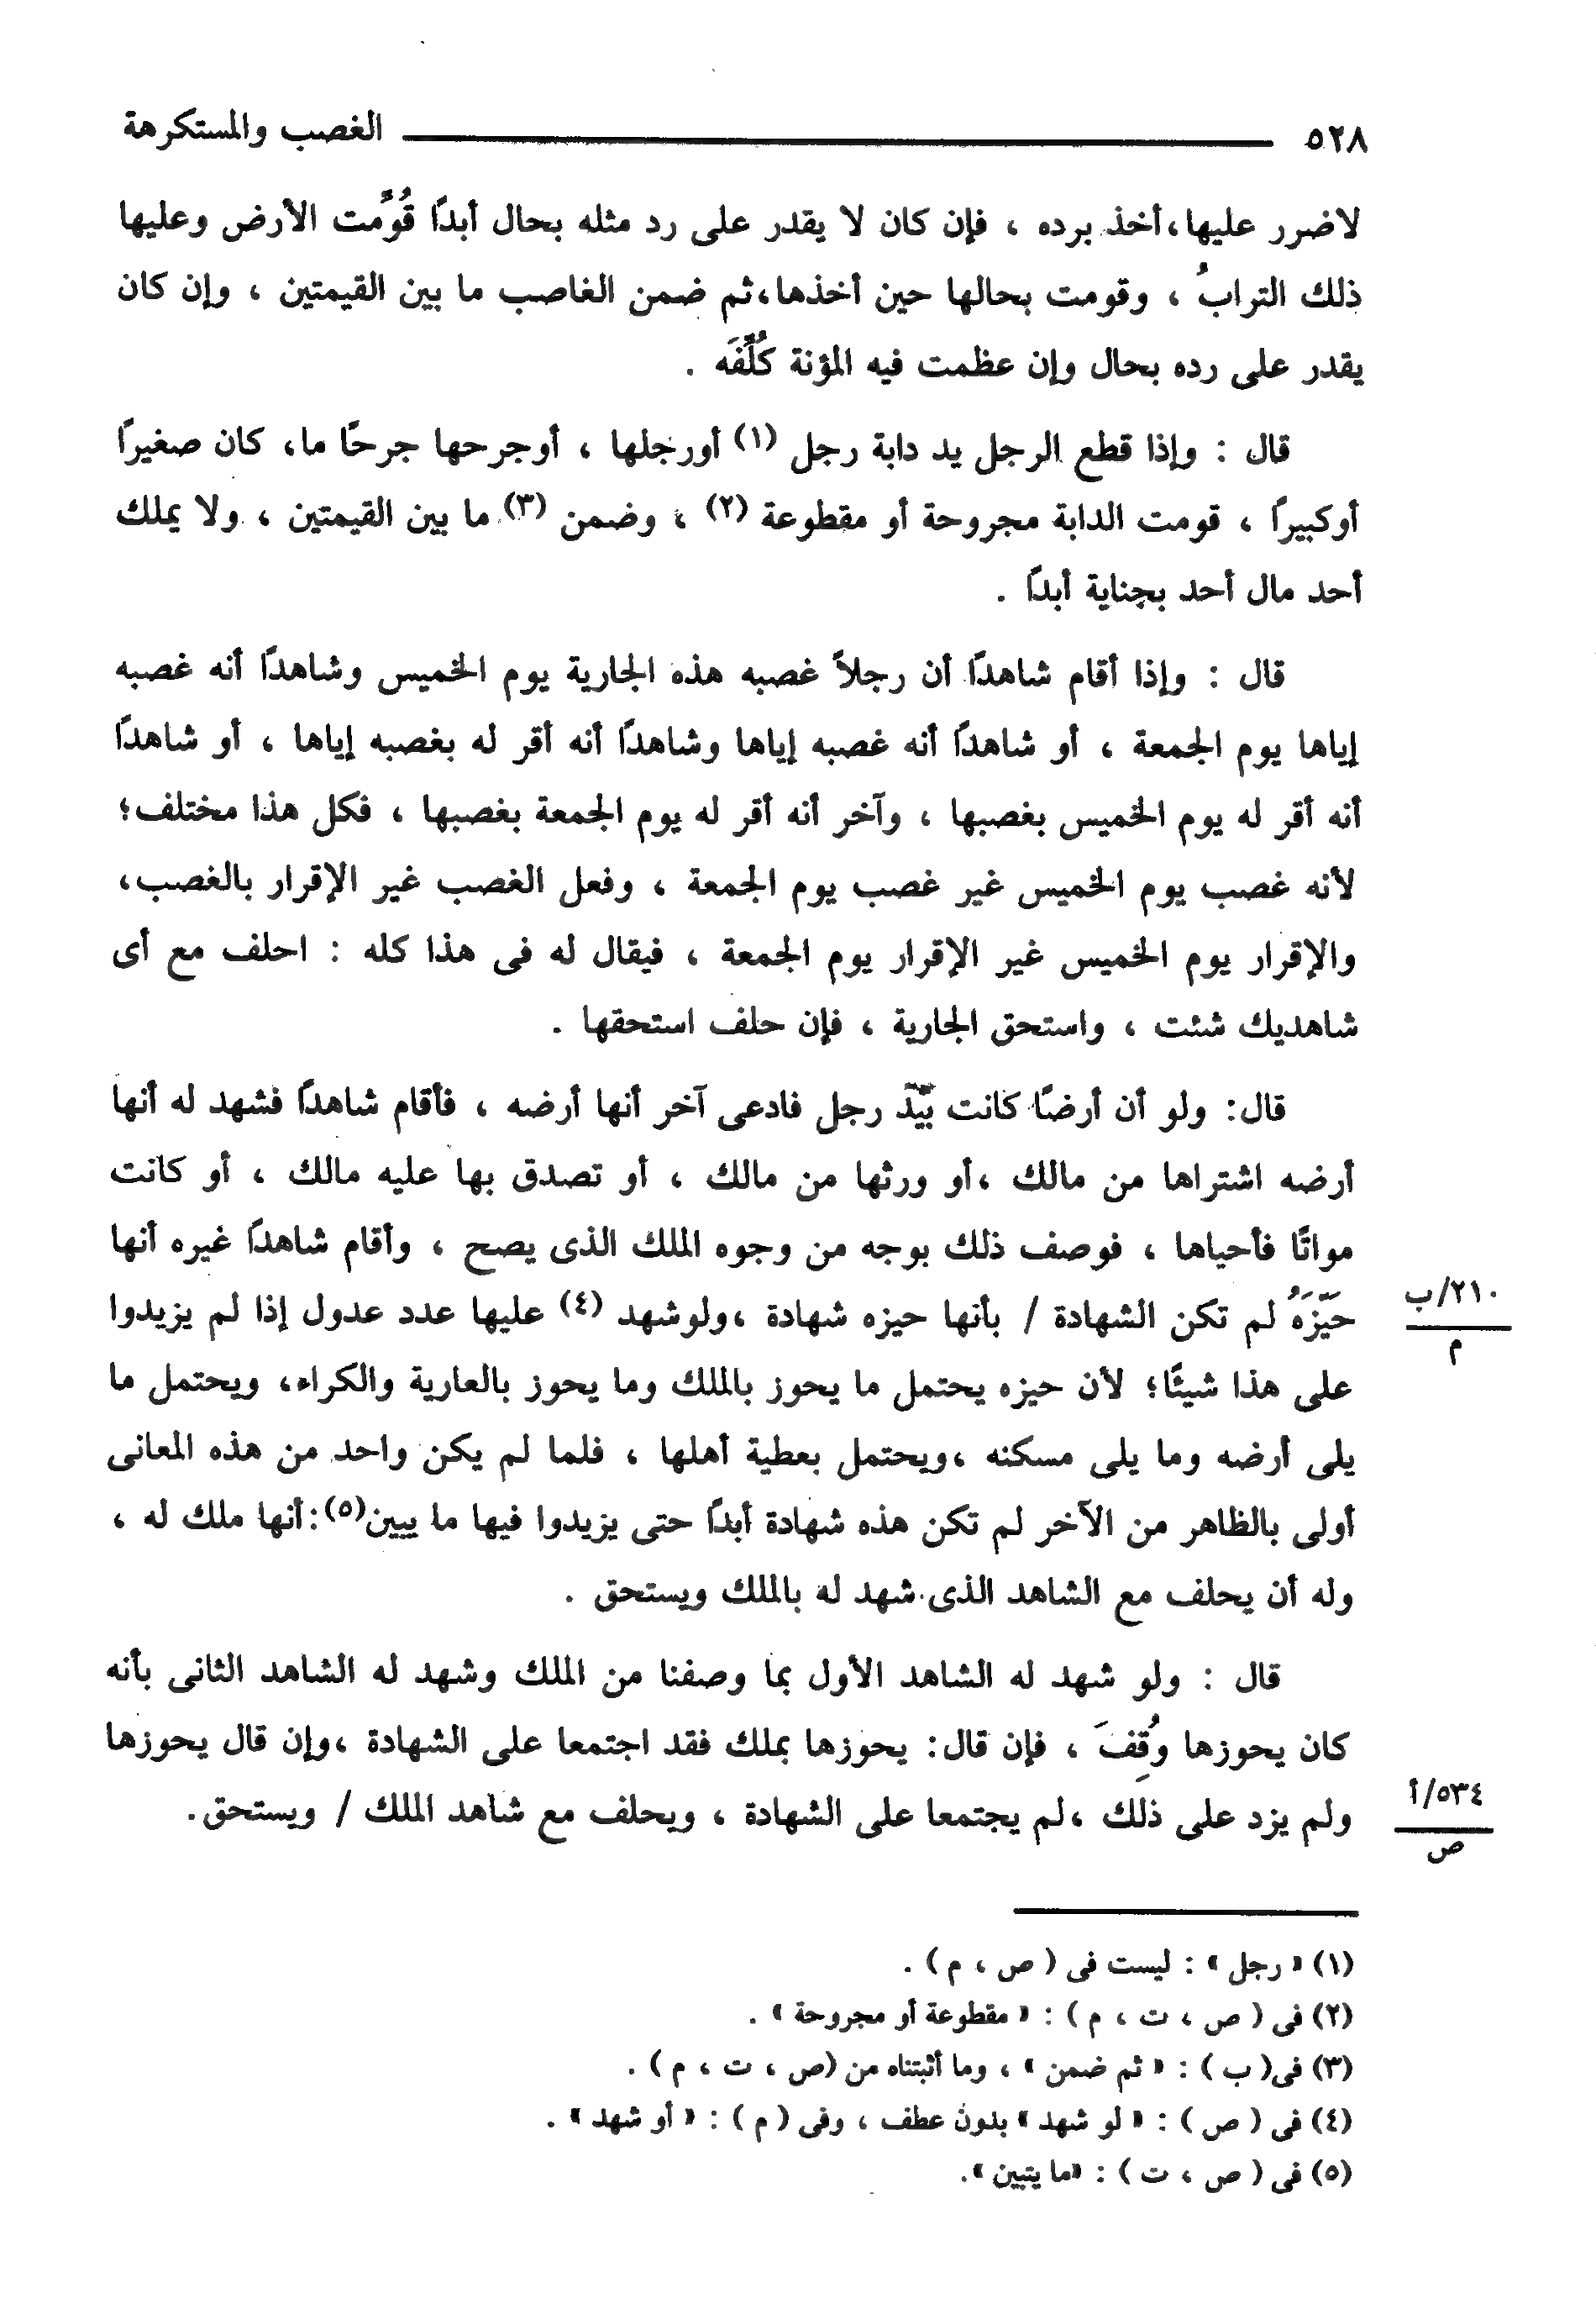 ٥٢٨ الغصب والمستكرهة
لاضرر عليها،أخذ برده ، فإن كان لا يقدر على رد مثله بحال أبدًا قُوِّمت الأرض وعليها
ذلك الترابُ ، وقومت بحالها حين أخذها،ثم ضمن الغاصب ما بين القيمتين ، وإن كان
يقدر على رده بحال وإن عظمت فيه المؤنة كُلِّفَه .
قال : وإذا قطع الرجل يد دابة رجل (١) أورجلها ، أوجرحها جرحًا ما، كان صغيرًا
أوكبيرًا ، قومت الدابة مجروحة أو مقطوعة (٢) ، وضمن (٣) ما بين القيمتين ، ولا يملك
أحد مال أحد بجناية أبدًا .
قال : وإذا أقام شاهدًا أن رجلاً غصبه هذه الجارية يوم الخميس وشاهدًا أنه غصبه
إياها يوم الجمعة ، أو شاهدًا أنه غصبه إياها وشاهدًا أنه أقر له بغصبه إياها ، أو شاهدًا
أنه أقر له يوم الخميس بغصبها ، وآخر أنه أقر له يوم الجمعة بغصبها ، فكل هذا مختلف؛
لأنه غصب يوم الخميس غير غصب يوم الجمعة ، وفعل الغصب غير الإقرار بالغصب،
والإقرار يوم الخميس غير الإقرار يوم الجمعة ، فيقال له فى هذا كله : احلف مع أى
شاهديك شئت ، واستحق الجارية ، فإن حلف استحقها .
قال: ولو أن أرضًا كانت بيد رجل فادعى آخر أنها أرضه ، فأقام شاهدًا فشهد له أنها
أرضه اشتراها من مالك ،أو ورثها من مالك ، أو تصدق بها عليه مالك ، أو كانت
مواتًا فأحياها ، فوصف ذلك بوجه من وجوه الملك الذى يصح ، وأقام شاهدًا غيره أنها
حَيِّزَهُ لم تكن الشهادة / بأنها حيزه شهادة ،ولوشهد (٤) عليها عدد عدول إذا لم يزيدوا
٢١٠/ب
م
على هذا شيئًا؛ لأن حيزه يحتمل ما يحوز بالملك وما يحوز بالعارية والكراء، ويحتمل ما
يلى أرضه وما يلى مسكنه ،ويحتمل بعطية أهلها ، فلما لم يكن واحد من هذه المعانى
أولى بالظاهر من الآخر لم تكن هذه شهادة أبدًا حتى يزيدوا فيها ما يبين(٥):أنها ملك له ،
وله أن يحلف مع الشاهد الذى شهد له بالملك ويستحق .
قال : ولو شهد له الشاهد الأول بما وصفنا من الملك وشهد له الشاهد الثانى بأنه
كان يحوزها وُقِفَ ، فإن قال: يحوزها بملك فقد اجتمعا على الشهادة ،وإن قال يحوزها
ولم يزد على ذلك ،لم يجتمعا على الشهادة ، ويحلف مع شاهد الملك / ويستحق.
٥٣٤/أ
ص
(١) « رجل » : ليست فى ( ص ، م ) .
(٢) فى ( ص ، ت ، م ) : « مقطوعة أو مجروحة » .
(٣) فى( ب ) : « ثم ضمن » ، وما أثبتناه من (ص ، ت ، م ) .
(٤) فى ( ص ) : « لو شهد » بدون عطف ، وفى ( م ) : « أو شهد » .
(٥) فى ( ص ، ت ) : «ما يتبين».